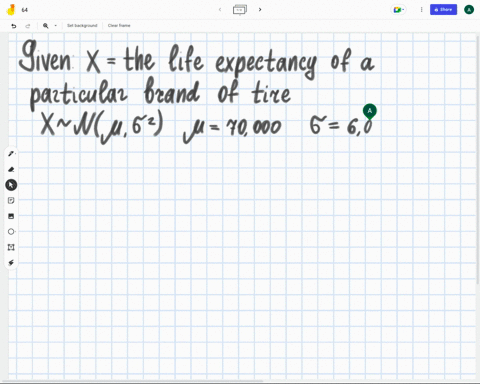 64
Set background
Clear frame
Share
A
Given X = the life expectancy of a
particular brand of tire
X~N(μ, σ²) μ = 70,000 σ = 6,0
A